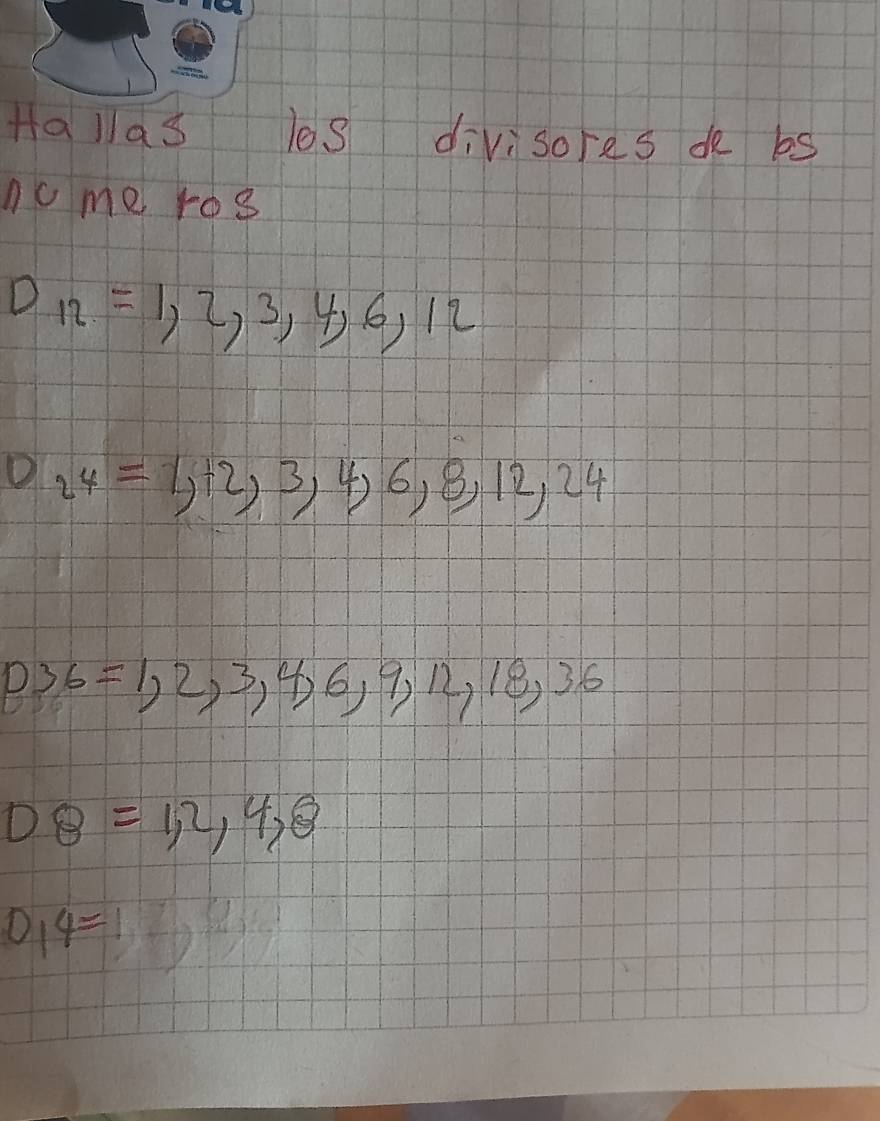 Hallas los divisores de los
nomeros
D 12 = 1, 2, 3, 4, 6, 12
D 24 = 1, 2, 3, 4, 6, 8, 12, 24
D36 = 1, 2, 3, 4, 6, 9, 12, 18, 36
D 8 = 1, 2, 4, 8
D14 = 1